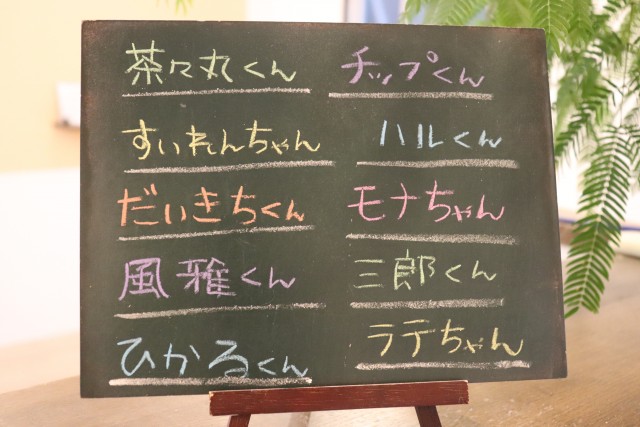 茶々丸くん
チップくん
すいれんちゃん
ハルくん
だいきちくん
モナちゃん
風雅くん
三郎くん
ひかるくん
ラテちゃん